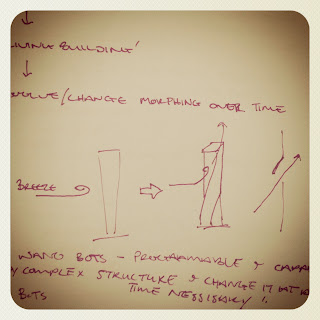 LIVING BUILDING'
EVOLVE/CHANGE MORPHING OVER TIME
BREEZE
BOTS - PROGRAMMABLE &
COMPLEX STRUCTURE & CHANGE IT AT
BOTS TIME NESSISARY !.